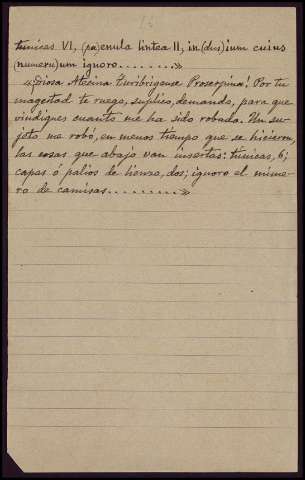 16
tunicas VI, (pa)enula lintea II, in(dus)ium cuius
(numeru)um ignoro........»
«¡Diosa Ataecina Turibrigense Proserpina! Por tu
magestad te ruego, suplico, demando, para que
vindiques cuanto me ha sido robado. Un su-
jeto me robó, en menos tiempo que se hicieron,
las cosas que abajo van insertas: túnicas, 6;
capas ó palios de lienzo, dos; ignoro el núme-
ro de camisas..........»